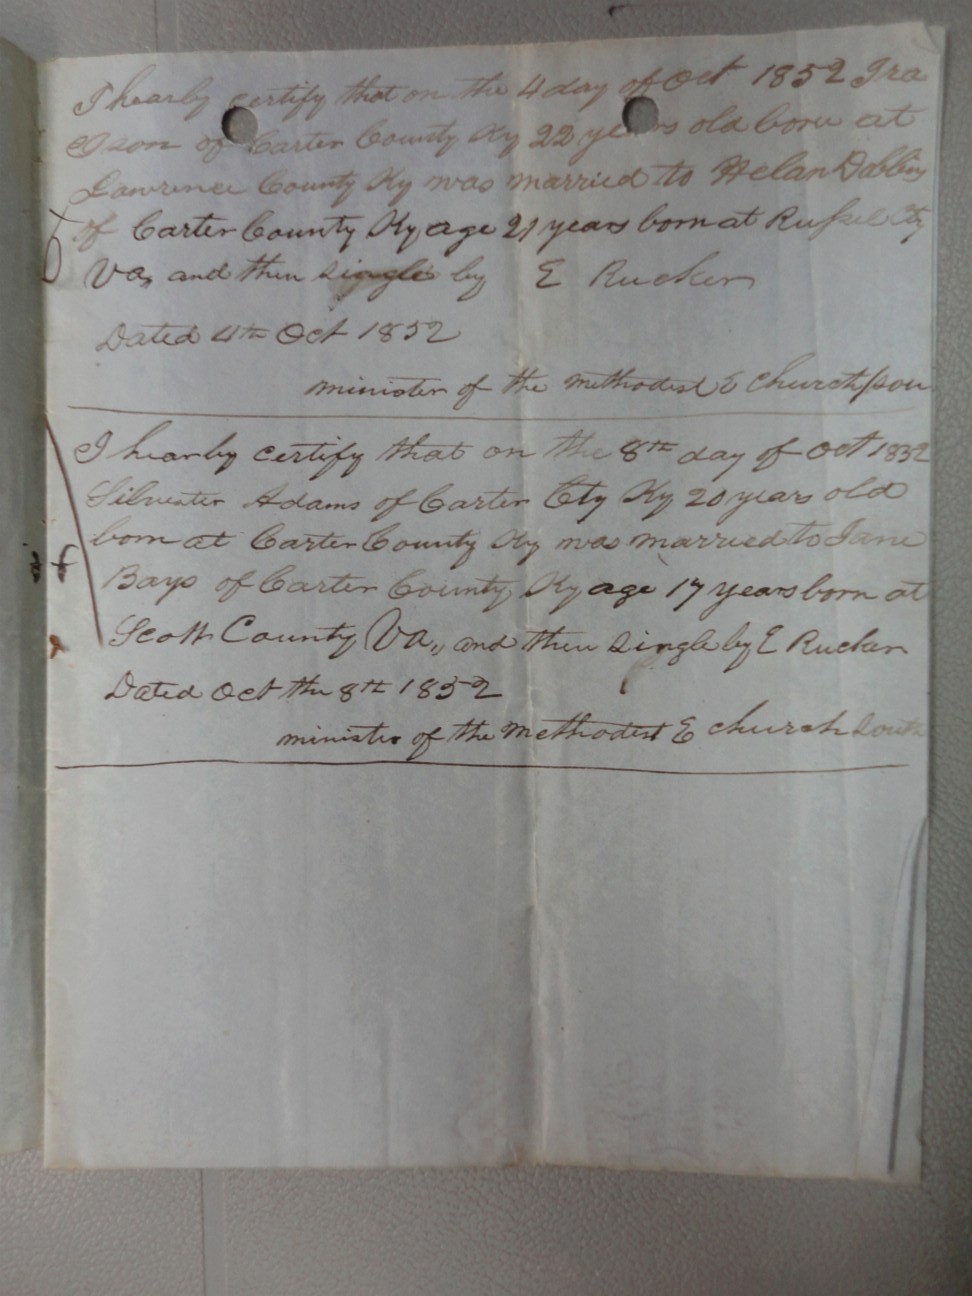 I hearby certify that on the 4 day of Oct 1852 Ira
Ison of Carter County Ky 22 years old born at
Lawrence County Ky was married to Helan Dobbins
of Carter County Ky age 21 years born at Russel Cty
Va, and then single by E Rucker
Dated 4th Oct 1852
minister of the Methodest E Church sou
I hearby certify that on the 8th day of Oct 1852
Silvester Adams of Carter Cty Ky 20 years old
born at Carter County Ky was married to Jane
Bays of Carter County, Ky age 17 years born at
Scott County Va,, and then single by E Rucker
Dated Oct the 8th 1852
minister of the Methodest E church South